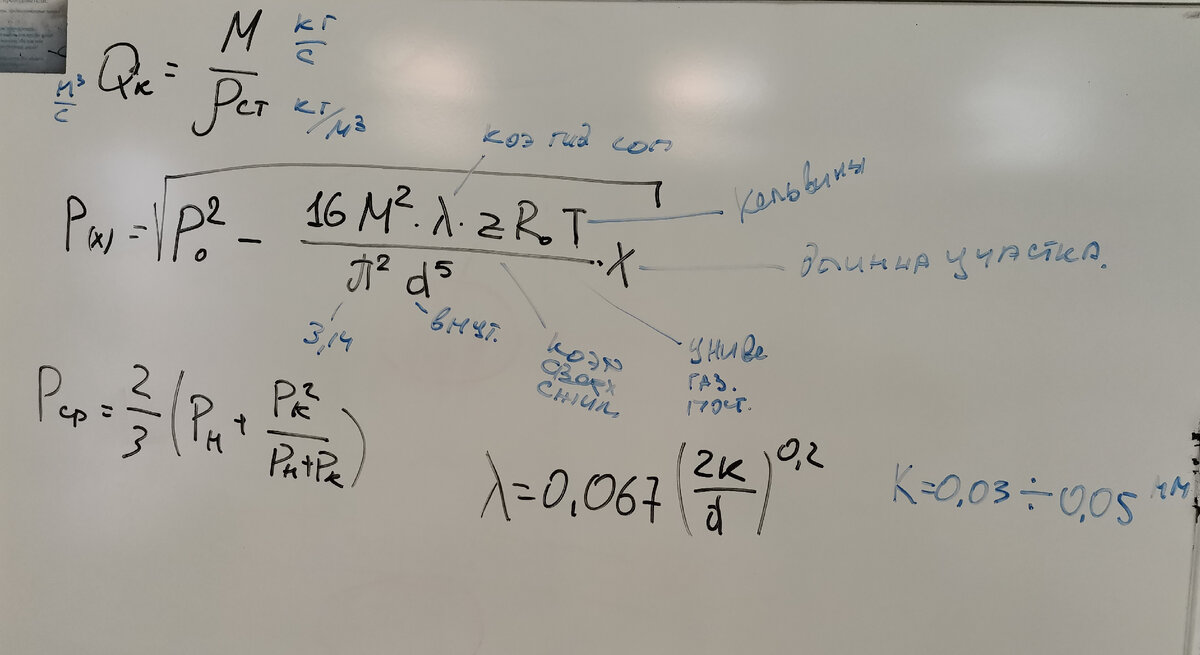 Qк = М / ρст
м³/с
кг/с
кг/м³
коэ гид соп
P(x) = √(P₀² − (16 M² · λ · z R₀ T) / (π² d⁵) · X)
Кельвины
длинна участка.
3,14
внут.
коэ
сжим.
униве
газ.
пост.
Pср = 2/3 (Pн + Pк² / (Pн+Pк))
λ = 0,067 (2к / d)^0,2
K=0,03 ÷ 0,05 мм